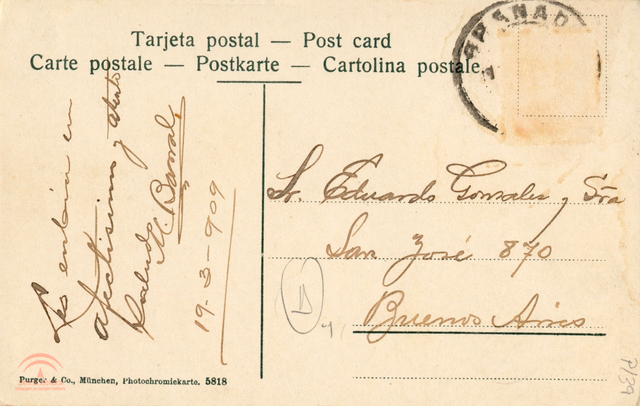 Tarjeta postal — Post card
Carte postale — Postkarte — Cartolina postale
GRANAD
Les envia un
afectisimo y atento
saludo
M. Barral
19-3-909
Sr. Eduardo Gonzalez y Sra
San José 870
Buenos Aires
Purger & Co., München, Photochromiekarte. 5818
P/39